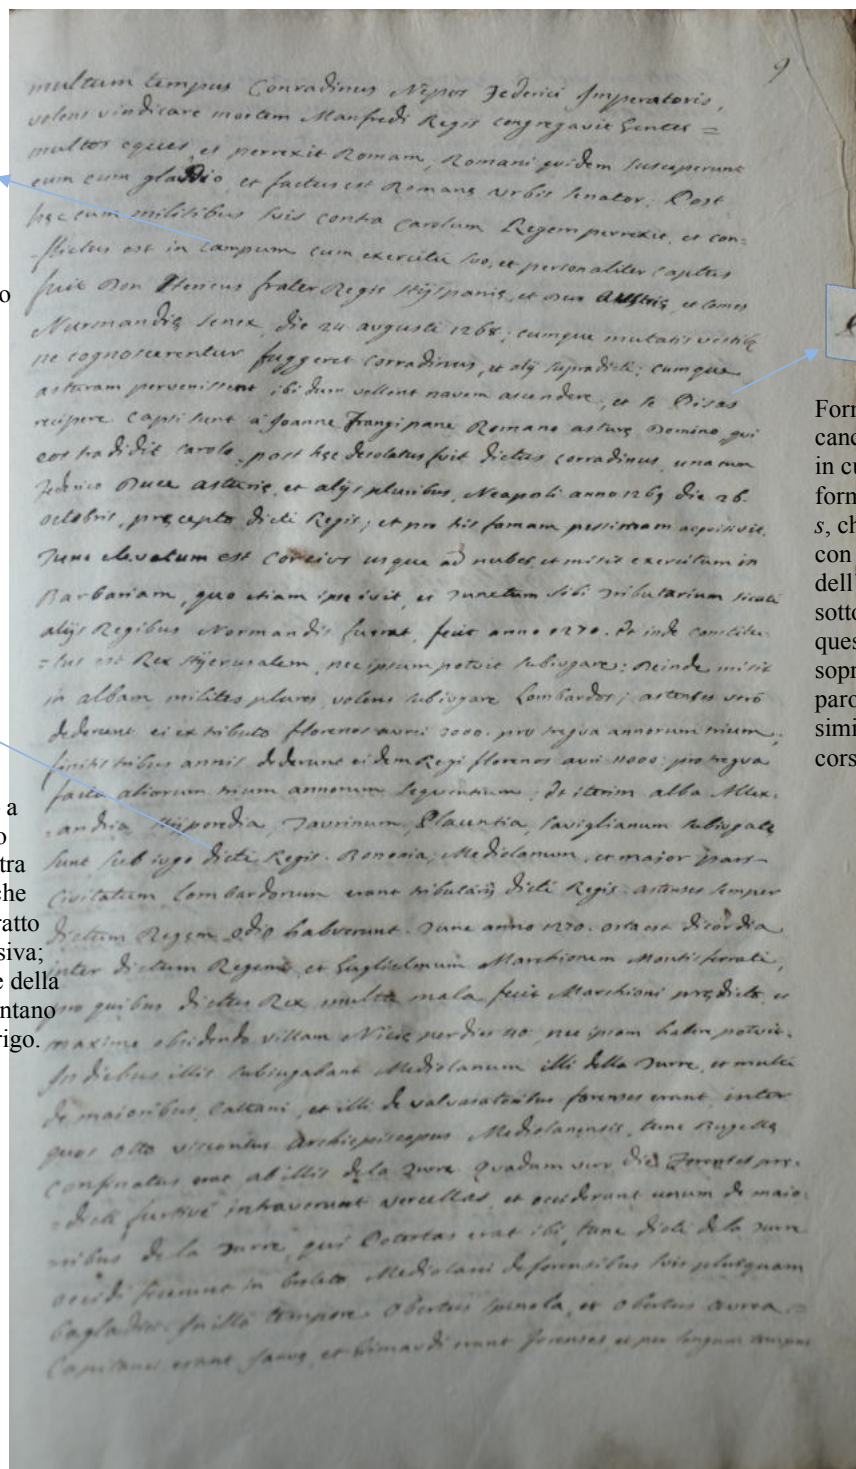 9
multum tempus Conradinus Nepos Federici Imperatoris,
volens vindicare mortem Manfredi Regis congregavit Gentes =
multos eques, et perrexit Romam, Romani quidem susceperunt
eum cum gladio, et factus est Romanę urbis senator; Post
hęc cum militibus suis contra Carolum Regem perrexit, et con=
-flictus est in campum cum exercitu suo, et personaliter captus
fuit Don Henricus frater Regis Hyspanię, et Dux Austrię, et Comes
Nurmandię senex, die 24 augusti 1268; cumque mutatis vestibꝫ
ne cognoscerentur fuggeret Corradinus, et alij supradicti; cumque
asturam pervenissent ibi dum vellent navem ascendere, et se Pisas
recipere capti sunt à Joanne Frangipane Romano asturę Domino, qui
eos tradidit Carolo, post hęc decolatus fuit dictus Corradinus, una cum
Federico Duce austrię, et alijs pluribus, Neapoli anno 1269 die 26.
octobris, pręcepto dicti Regis; et pro his famam pessimam acquisivit.
Tunc elevatum est cor eius usque ad nubes, et misit exercitum in
Barbariam, quo etiam ipse ivit, et Tunetum sibi Tributarium sicuti
alijs Regibus Normandis fuerat, fecit anno 1270. Et inde constitu=
=tus est Rex Hyerusalem, nec ipsum potuit subiugare: Deinde misit
in albam milites plures, volens subiugare Lombardos; astenses verò
dederunt ei ex tributo florenos aurei 3000. pro tregua annorum trium,
finitis tribus annis dederunt eidem Regi florenos auri 11000: pro tregua
facta aliorum trium annorum sequentium; Et iterim alba Allex=
-andria, Hyporedia, Taurinum, Placentia, Saviglianum subiugatę
sunt sub iugo dicti Regis. Bononia, Mediolanum, et major pars
Civitatum Lombardorum erant tributarij dicti Regis. astenses semper
dictum Regem odio habuerunt. Tunc anno 1270. orta est discordia
inter dictum Regem, et Guglielmum Marchionem Montisferrati,
pro quibus dictus Rex multa mala fecit Marchioni prędicto, et
maxime obsidendo villam Nicię per dies 40. nec ipsam habere potuit.
In diebus illis subiugabant Mediolanum illi della Turre, et multi
de maioribus, Cattani, et illi de valvasatoribus forenses erant, inter
quos otto vicecontus Archiepiscopus Mediolanensis, tunc
confinatus erat ab illis de la Turre. Quadam vero die Forenses prę=
=dicti furtivè intraverunt vercellas, et occiderunt unum de maio=
ribus de la Turre, qui Potestas erat ibi, tunc dicti de la Turre
occidi fecerunt in Mediolani de forensibus suis plusquam
In illo tempore Obertus Spinola, et Obertus Aurea =
Capitanei erant Januę, et Grimaudi erant forenses, et per longum tempus
o
a
o
tra
che
ratto
siva;
e della
ntano
rigo.
Form
canc
in cu
form
s, ch
con
dell'
sotto
ques
sopr
paro
simi
cors